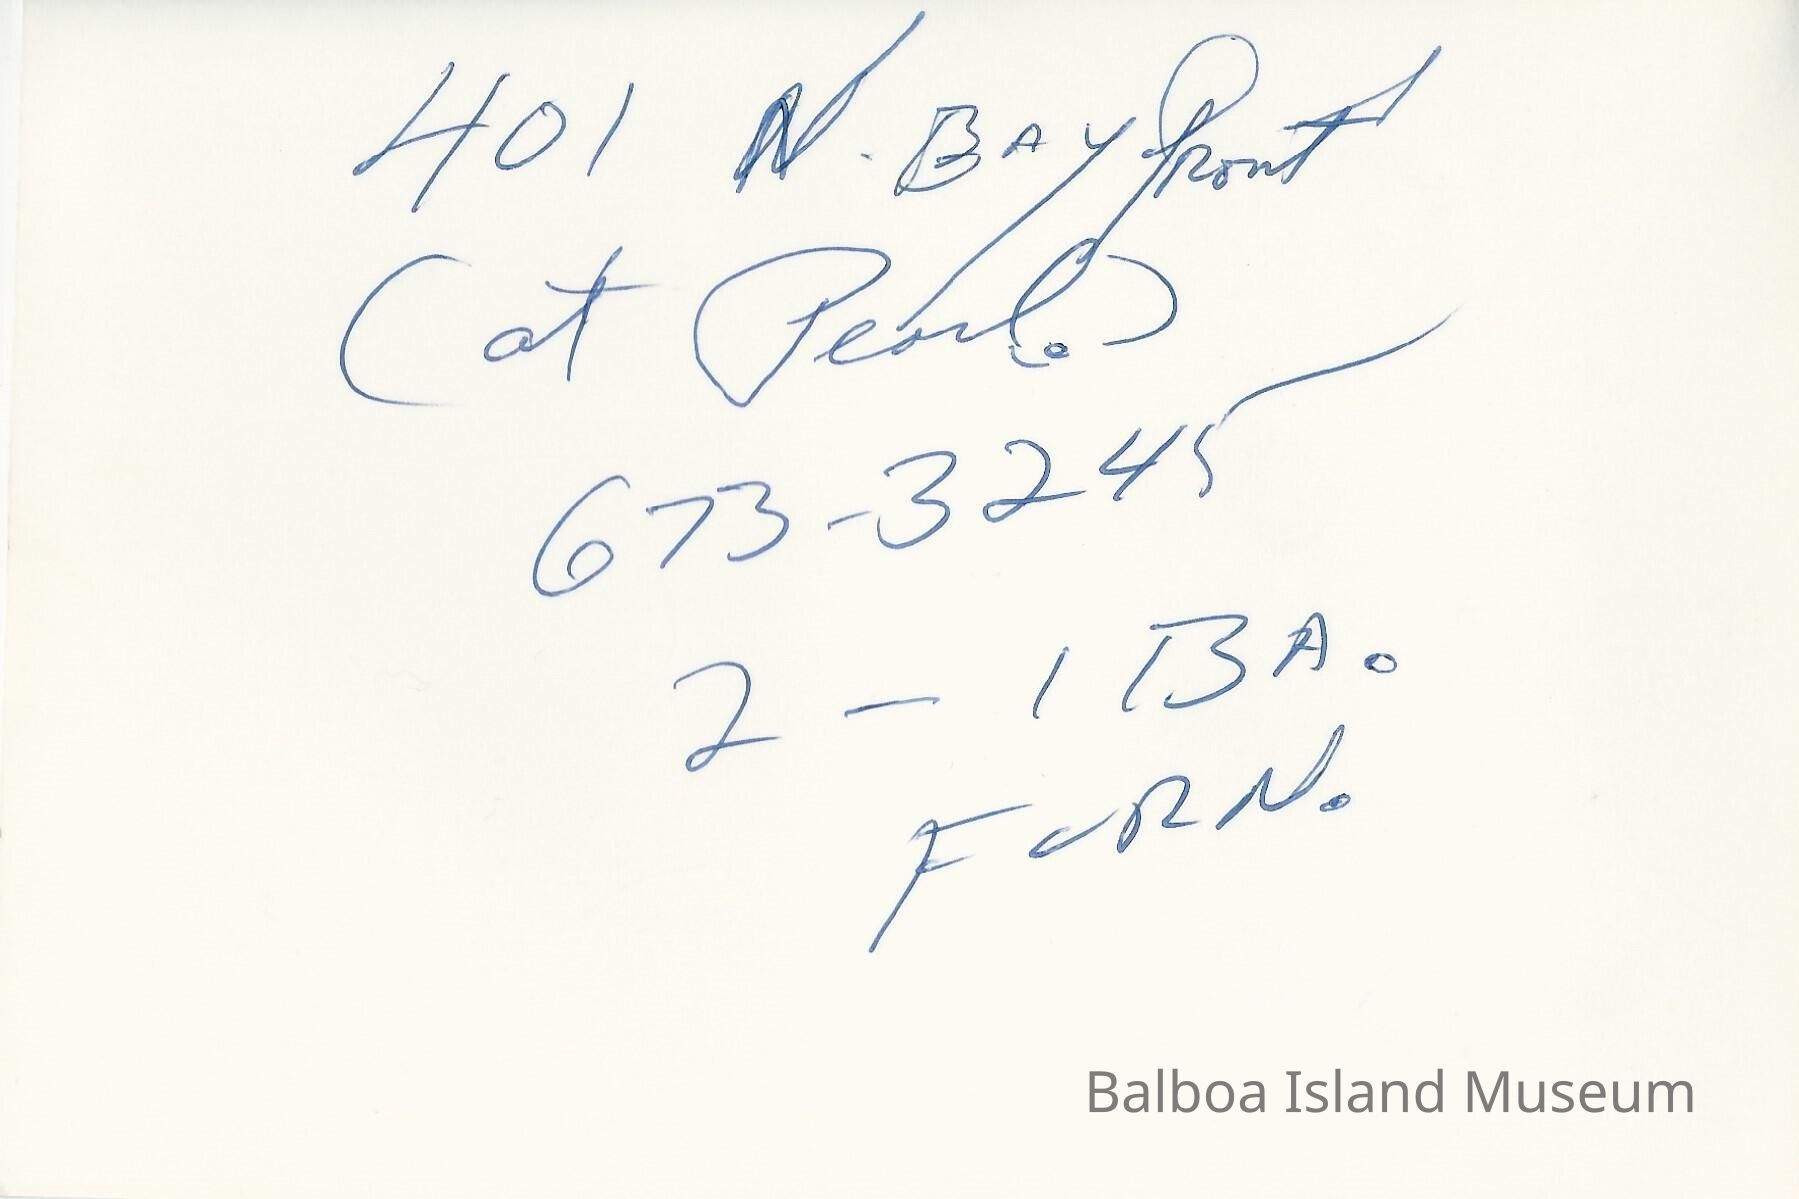 401 N. BAYfront
(at Pearl.)
673-3245
2 - 1 BA.
FURN.
Balboa Island Museum